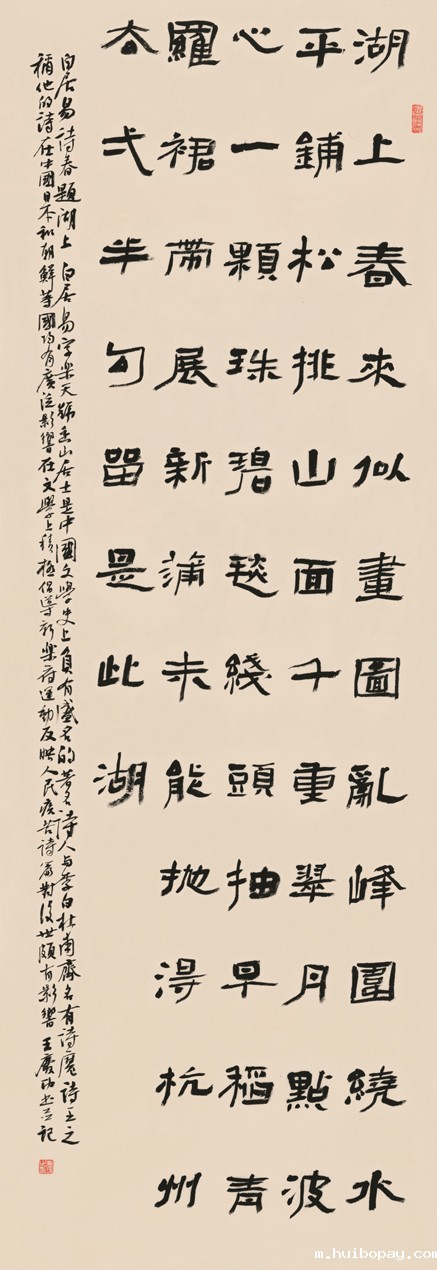 湖上春來似畫圖亂峰圍繞水
平鋪松排山面千重翠月點波
心一顆珠碧毯綫頭抽早稻青
羅裙帶展新蒲未能拋得杭州
去弌半勾留是此湖
白居易詩春題湖上 白居易字樂天號香山居士是中國文學史上負有盛名的著名詩人与李白杜甫齊名有詩魔詩王之
稱他的詩在中國日本和朝鮮等國均有廣泛影響在文學上積極倡導新樂府運動反映人民疾苦詩篇對後世頗有影響 王慶功書並記
m.huibopay.com